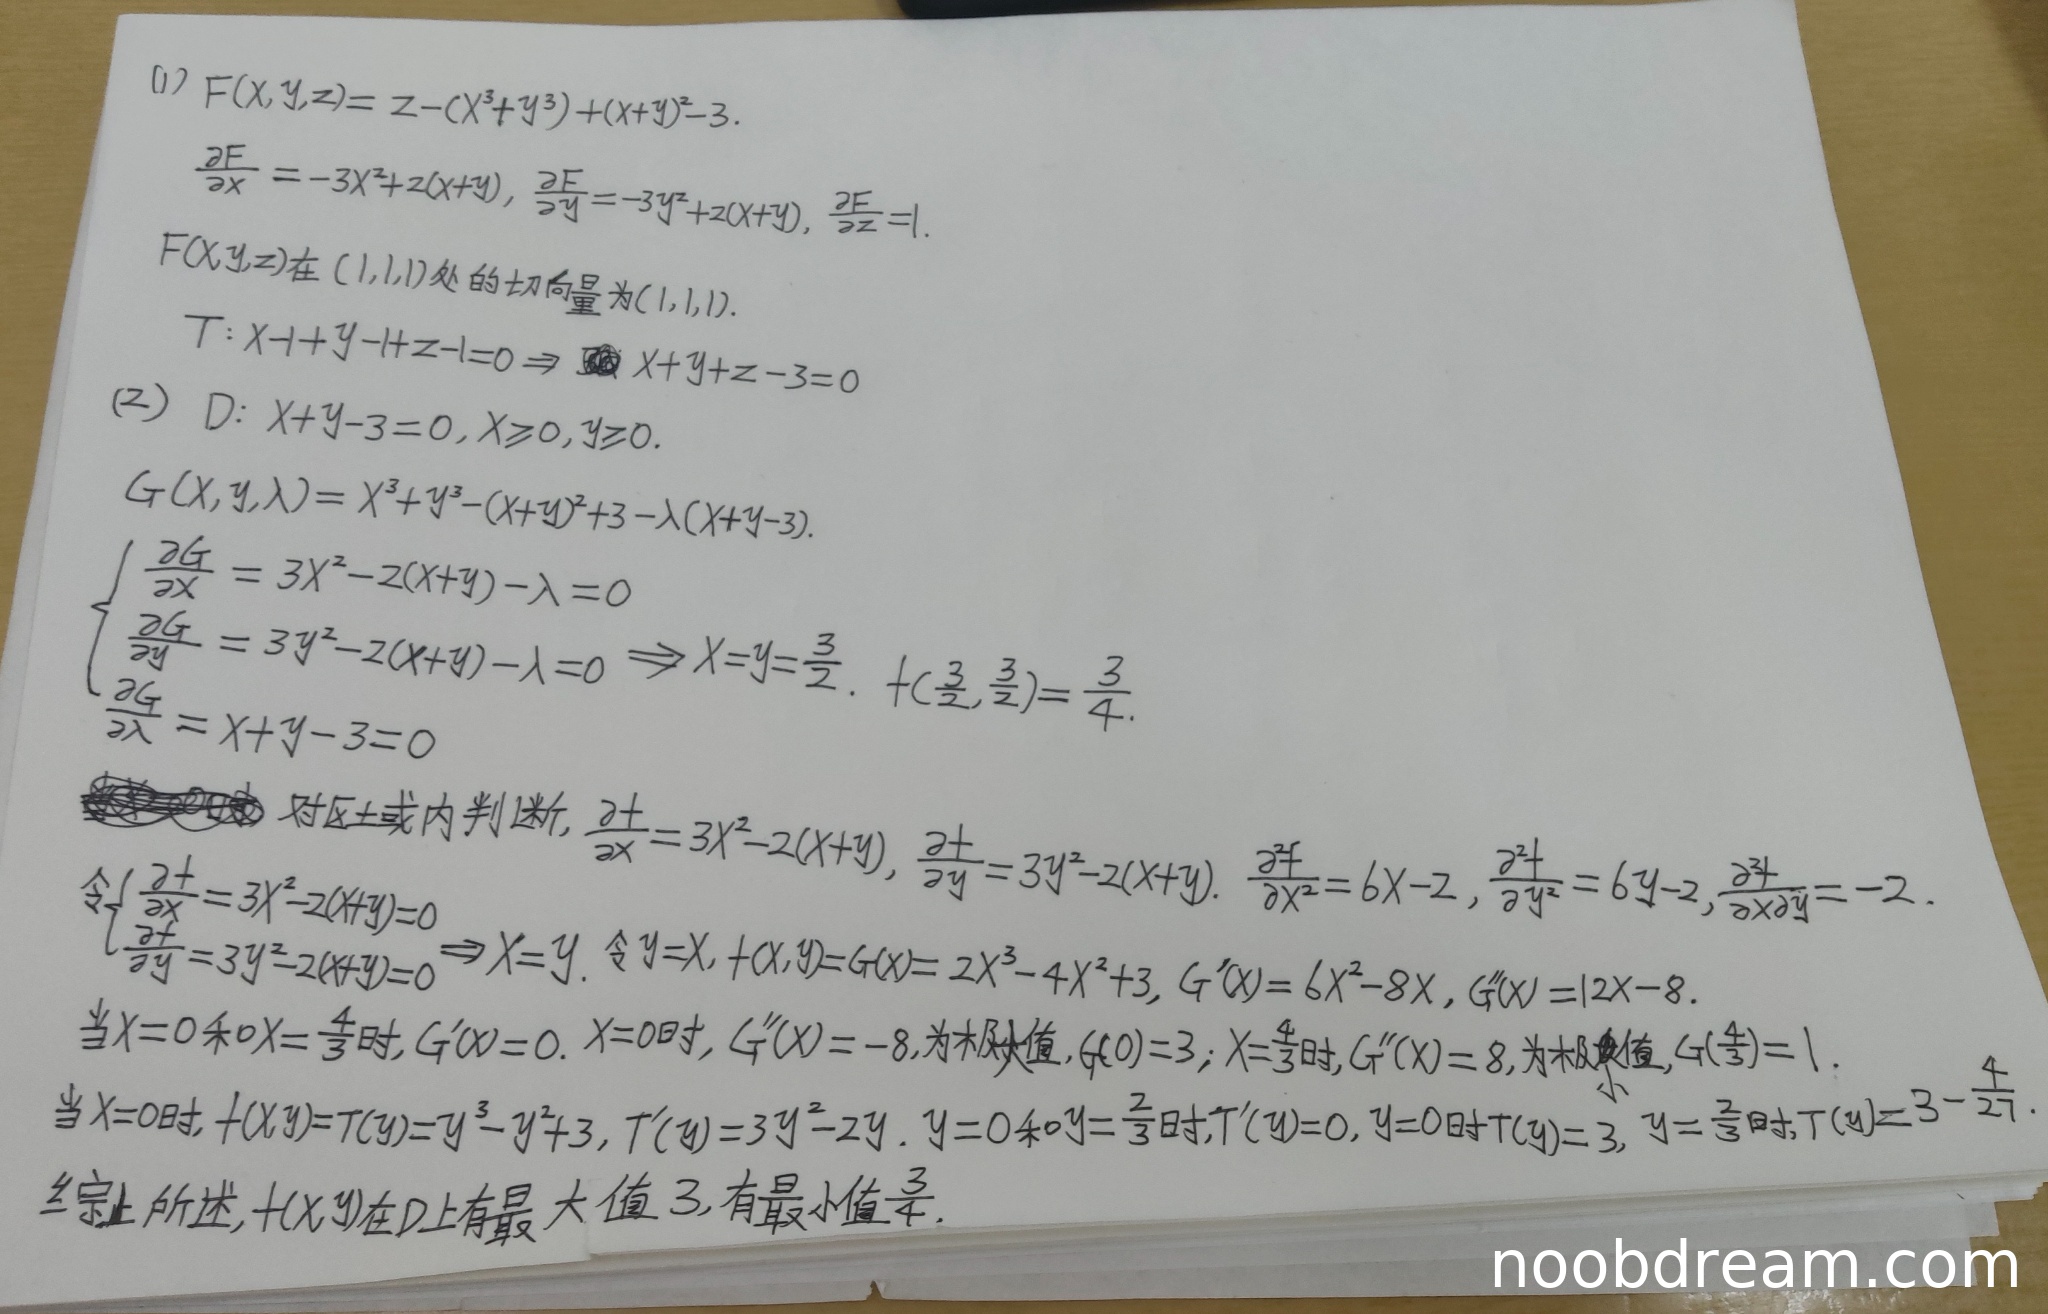 (1) F(x,y,z)= z-(x³+y³)+(x+y)²-3.
∂F/∂x = -3x²+2(x+y), ∂F/∂y = -3y²+2(x+y), ∂F/∂z =1.
F(x,y,z)在(1,1,1)处的切向量为(1,1,1).
T: x-1+y-1+z-1=0 ⇒ x+y+z-3=0
(2) D: x+y-3=0, x≥0, y≥0.
G(x,y,λ)= x³+y³-(x+y)²+3-λ(x+y-3).
∂G/∂x = 3x²-2(x+y)-λ=0
∂G/∂y = 3y²-2(x+y)-λ=0 ⇒ x=y=3/2. f(3/2, 3/2)= 3/4.
∂G/∂λ = x+y-3=0
对区域内判断, ∂f/∂x =3x²-2(x+y), ∂f/∂y =3y²-2(x+y). ∂²f/∂x² =6x-2, ∂²f/∂y² =6y-2, ∂²f/∂x∂y =-2.
令{ ∂f/∂x =3x²-2(x+y)=0
∂f/∂y =3y²-2(x+y)=0 ⇒ x=y. 令y=x, f(x,y)=G(x)= 2x³-4x²+3, G'(x)= 6x²-8x, G''(x)=12x-8.
当x=0和x=4/3时, G'(x)=0. x=0时, G''(x)=-8,为极大值, G(0)=3; x=4/3时, G''(x)=8,为极小值, G(4/3)=1.
当x=0时, f(x,y)=T(y)=y³-y²+3, T'(y)=3y²-2y. y=0和y=2/3时, T'(y)=0, y=0时T(y)=3, y=2/3时, T(y)=3-4/27.
综上所述, f(x,y)在D上有最大值3, 有最小值3/4.
noobdream.com